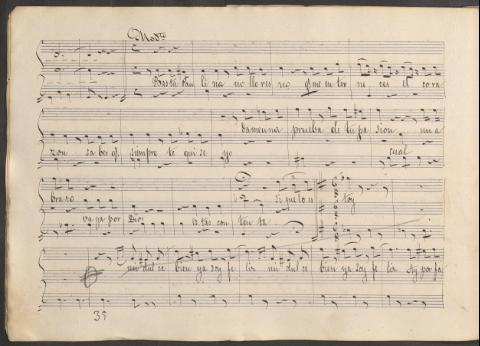 Modto
Basta Pau li na no llores no q me en ter ne ces el cora
dame una prueba de tu pa sion un a
zon sa bes q siempre te qui se yo cual
bra zo si que lo es toy
va ya por Dios es tas con ten ta
mi dul ce bien ya soy fe liz mi dul ce bien ya soy fe liz Ay por fa
39